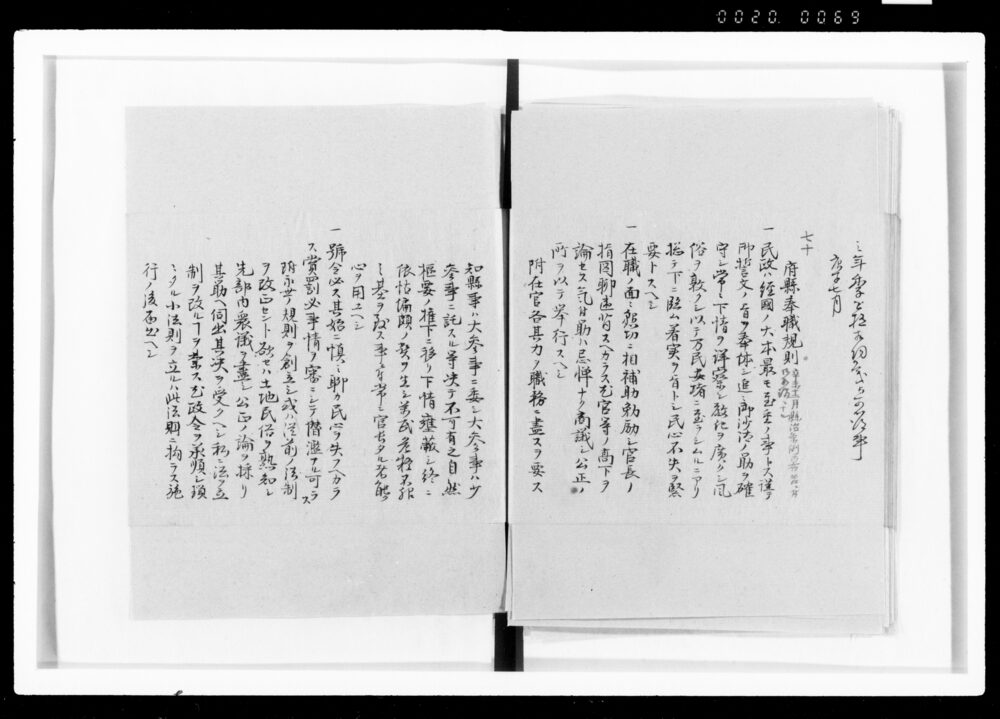 0020. 0069
庚午七月
七十
府縣奉職規則
一 民政ハ經國ノ大本最モ至重ノ事トス謹テ
御誓文ノ旨ヲ奉体シ追々御沙汰ノ助ヲ確
守シ常ニ下情ヲ詳察シ教化ヲ廣クシ風
俗ヲ敦クシ以テ万民安堵ニ至ラシムルニアリ
総テ下ニ臨ム着実ヲ旨トシ民心不失ヲ緊
要トスヘシ
一 在職ノ面々懇切ニ相補助勅励シ官長ノ
指図聊違背スヘカラス尤官等ノ高下ヲ
論セス気付助ハ忌憚ナク商議シ公正ノ
所ヲ以テ挙行スヘシ
附在官各其力ヲ職務ニ盡スヲ要ス
知縣事ハ大参事ニ委シ大参事ハ少
参事ニ託スル等決テ不可有之自然
樞要ノ権下ニ移リ下情壅蔽シ終ニ
依怙偏頗ノ弊ヲ生シ
ミ基ヲ啟ス事ニ付常ニ官長タル者能
心ヲ用ユヘシ
一 號令必ス其始ニ慎ミ聊カ民心ヲ失フヘカラ
ス賞罰必事情ヲ審ニシテ僭濫アル可ラス
附永世ノ規則ヲ創立シ或ハ従前ノ法制
ヲ改正セント欲セハ土地民俗ヲ熟知シ
先部内衆議ヲ盡シ公正ノ論ヲ採リ
其助ヘ伺出其決ヲ受クヘシ私ニ法ヲ立
制ヲ改ルヿヲ禁ス尤政令ヲ承順シ瑣
々タル小法則ヲ立ルハ此法則ニ拘ラス施
行ノ後届出ヘシ